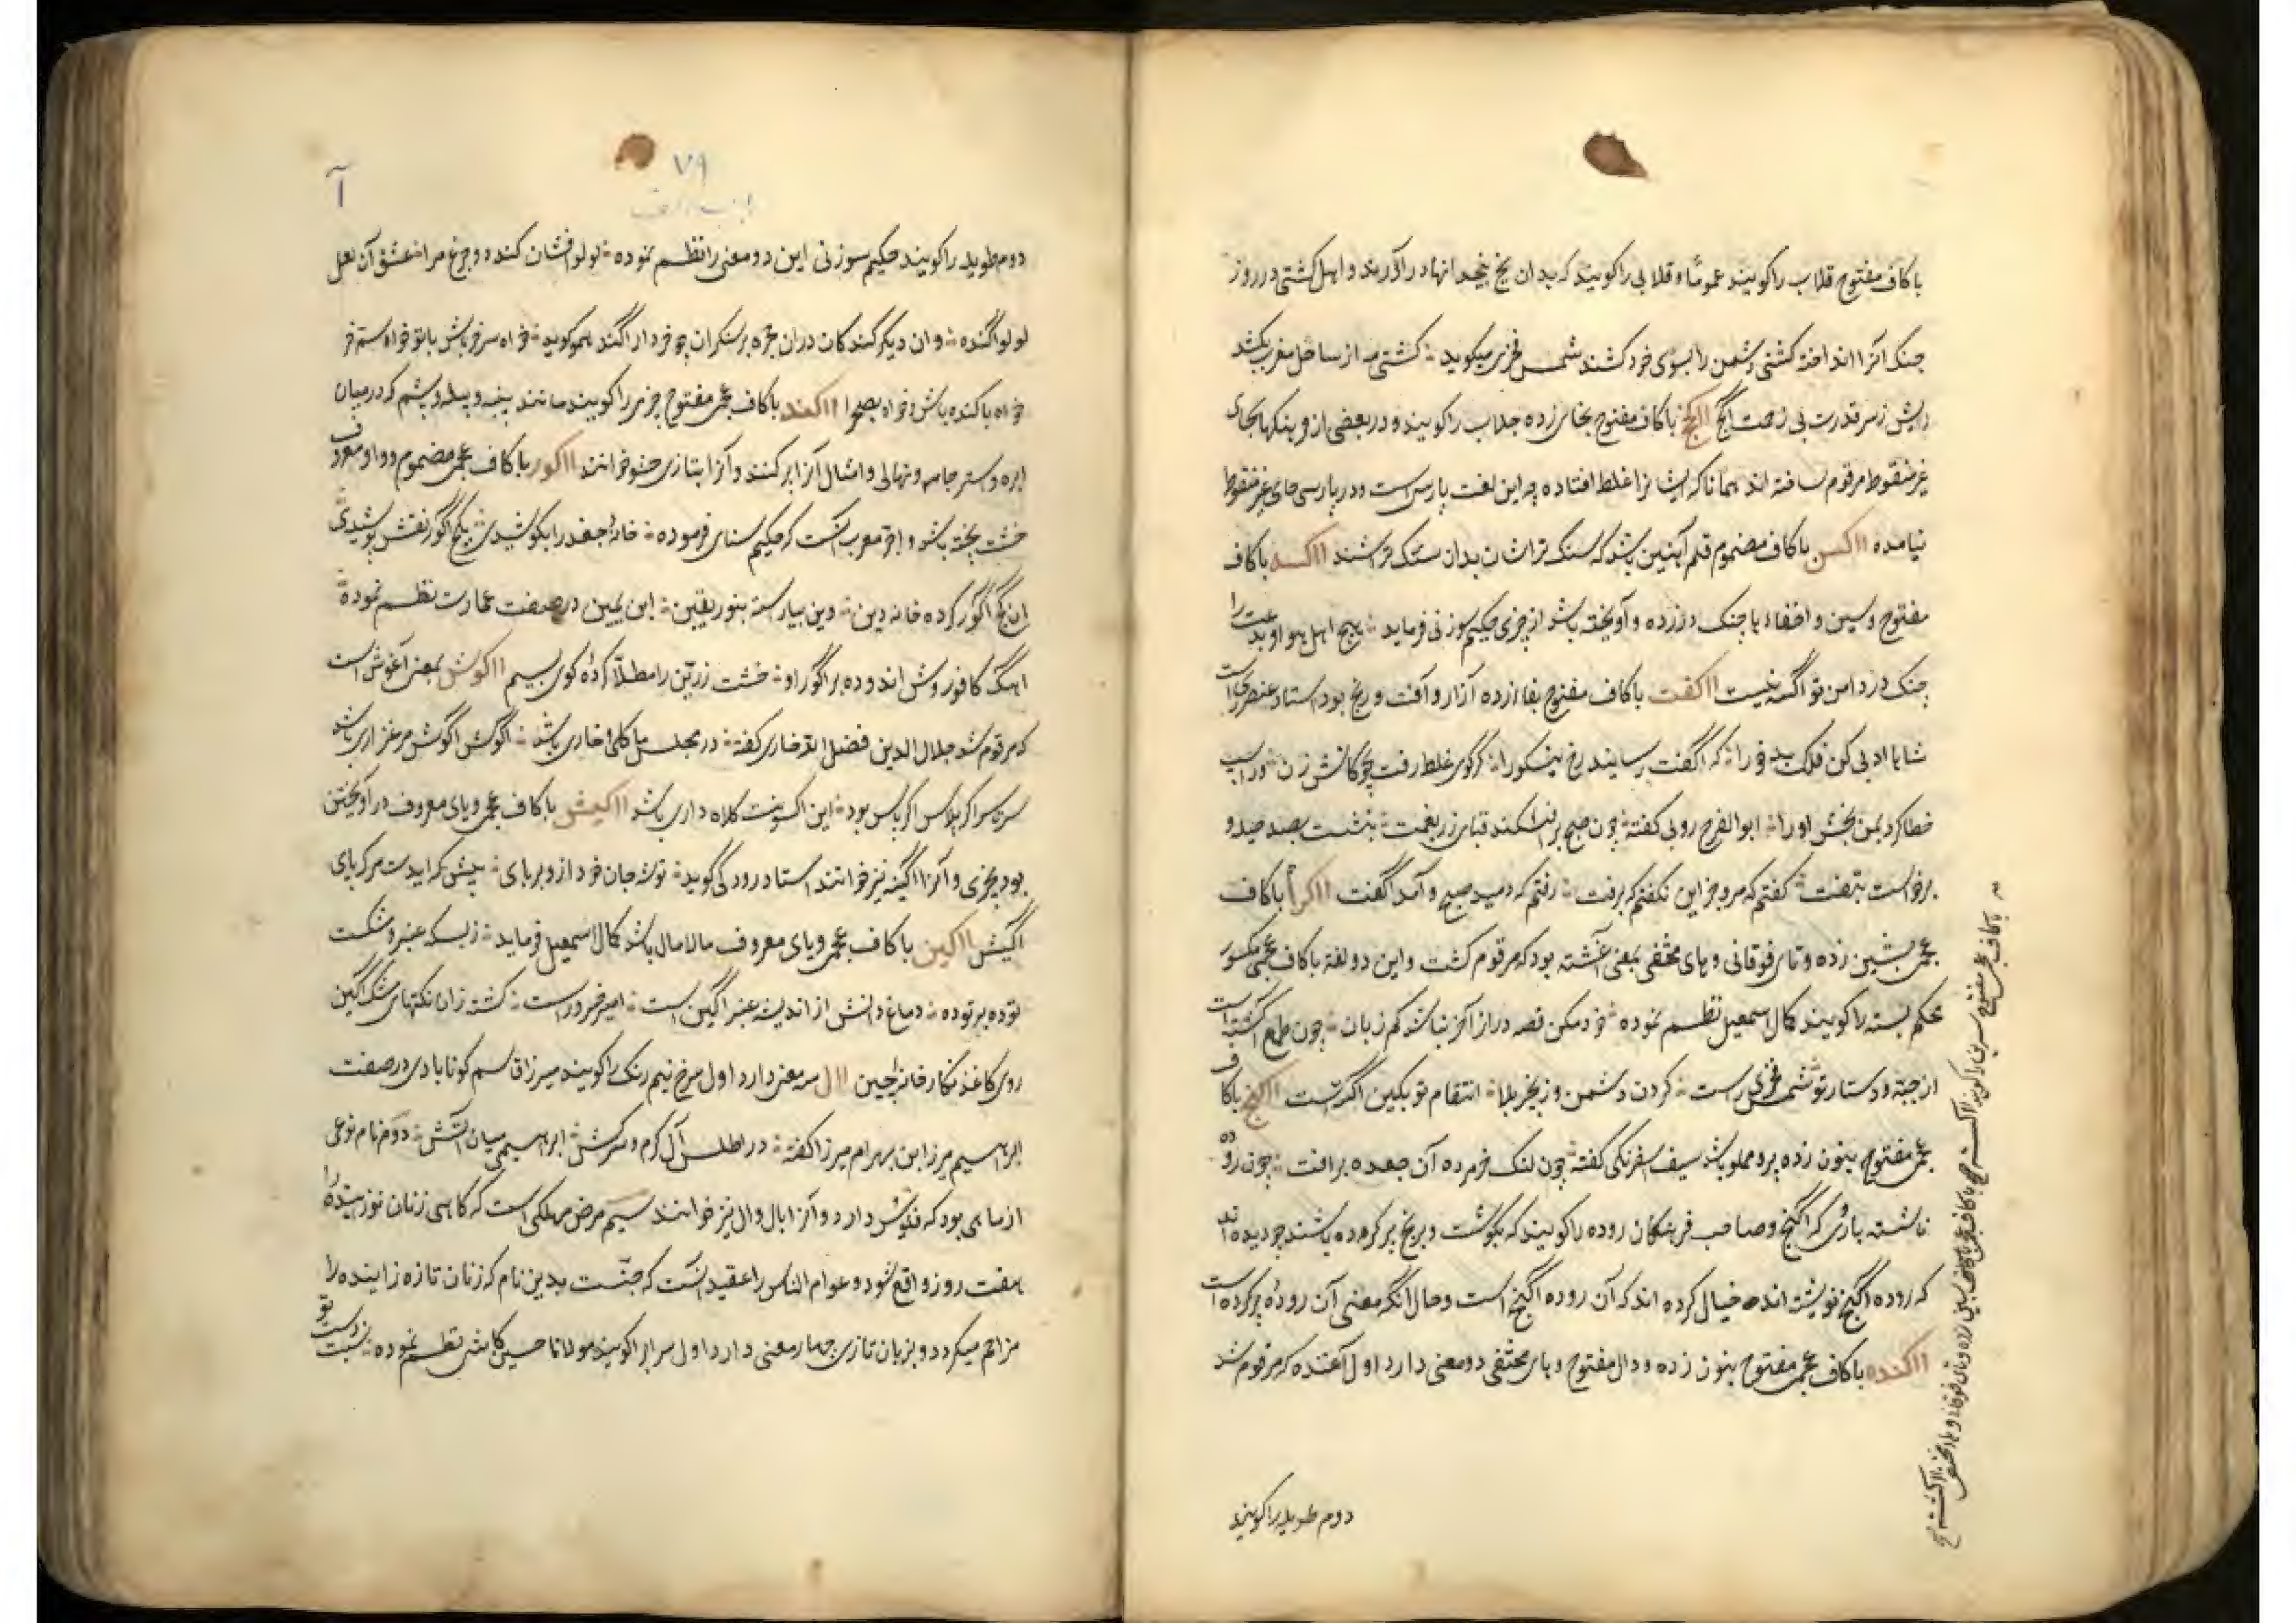 با کاف مفتوح قلاب را کویند عموما و قلابی را کویند که بدان یخ در یخدانها در آورند و اهل کشتی در روز
جنک آنرا انداخته کشتی دشمن را بسوی خود کشند شمس فخری میکوید کشتی مه از ساحل مغرب بکشد
رایش ز سر قدرت بی زحمت اکج ااکخ با کاف مفتوح بخای زده جلاب را کویند و در بعضی از فرهنکها بجای
غیر منقوط مرقوم ساخته اند همانا که ایشانرا غلط افتاده چه این لغت پارسی است و در پارسی حای غیر منقوط
نیامده ااکسن با کاف مضموم قلم آهنین باشد که سنک تراشان بدان سنک تراشند ااکسه با کاف
مفتوح و سین و اخفاء ها جنک در زده و آویخته باشد از چیزی حکیم سوزنی فرماید هیچ اهل هوا و بدعت را
جنک در دامن تو اکسه نیست ااکفت با کاف مفتوح بفا زده آزار و آفت و رنج بود استاد عنصری راست
شاها ادبی کن فلک بدخو را که اکفت رسانید رخ نیکو را کر کوی غلط رفت بچوکانش زن ور اسب
خطا کرد بمن بخش او را ابوالفرج رونی کفته چون صبح برافکند قبای زربفت بنشست بصد حیله و
برخاست بتفت کفتم که مرو جز این نکفتم که برفت رفتم که دمید صبح و آمد اکفت با کاف
عجمی بشین زده و تای فوقانی و های مختفی بمعنی آغشته بود که مرقوم کشت و این دو لغة با کاف عجمی مکسور
محکم بسته را کویند کمال اسمعیل نظم نموده خود مکن قصه دراز آخر نباشد کم زبان چون طمع اکشته است
از جبه و دستار تو شمس فخری راست کردن دشمن و زنجیر بلا انتقام تو بکین اکشته است ااکنج با کاف
عجمی مفتوح بنون زده پر و مملو باشد سیف اسفرنکی کفته چون لنک خرم ده آن جعده برافت چون روده
ناشسته باژی که اکنج و صاحب فرهنکان روده را کویند که بکوشت و برنج پر کرده باشند چو دیده اند
که روده اکنج نوشته اند خیال کرده اند که آن روده اکنج است و حال آنکه معنی آن رودهٔ پر کرده است
ااکنده با کاف عجمی مفتوح بنون زده و دال مفتوح و های مختفی دو معنی دارد اول آغنده که مرقوم شد
دوم طویله را کویند
٧٩
آ
دوم طویله را کویند حکیم سوزنی این دو معنی را نظم نموده لولو افشان کند دو جزع مرا عشق آن لعل
لولو اکنده وان دیکر کندکان دران حجره بر سکران چو خر دار اکند همو کوید خواه سرخر باش با تو خواه ستم خر
خواه باکنده باش و خواه بصحرا ااکند با کاف عجمی مفتوح چیزی را کویند مانند پنبه و پیله و پشم که درمیان
ابره و استر جامه و نهالی و امثال آنرا پر کنند و آنرا بتازی حشو خوانند ااکور با کاف عجمی مضموم و واو معروف
خشت پخته باشد و آجر معرب آنست که حکیم سنای فرموده خانهٔ جغد را بکوشیدی بکج اکور نقش پوشیدی
ان کج اکور کرده خانه دین دین بیاراسته بنور یقین ابن یمین در صفت عمارت نظم نموده
اهک کافور وش اندوده بر اکور او خشت زرین را مطلا کردهٔ کوی بسیم ااکوش بمعنی آغوش است
که مرقوم شد جلال الدین فضل الله خاری کفته در مجلس ما کلی و خاری باشد اکوش اکوش مرغزاری باشد
سرتاسر اکر پلاس اکر پاس بود این اکسونت کلاه داری باشد ااکیش با کاف عجمی و یای معروف در آویختن
بود بچیزی و آنرا اکیشه نیز خوانند استاد رودکی کوید توشه جان خود ازو بربای پیش کایدت مرک پای
اکیش ااکین با کاف عجمی و یای معروف مالامال باشد کمال اسمعیل فرماید ز بسکه عنبر و مشکست
توده بر توده دماغ دانش از اندیشه عنبر اکین است امیر خسرو راست کشته زان نکتهای مشک اکین
روی کاغذ نکارخانهٔ چین اال سه معنی دارد اول سرخ نیم رنک را کویند میرزا قاسم کونابادی در صفت
ابراهیم میرزا بن بهرام میرزا کفته در اطلس آل کرم و سرکش ابراهیمی میان آتش دوم نام نوعی
از ماهی بود که فلوس دارد و آنرا بال و وال نیز خوانند سیم مرض مهلکی است که کاهی زنان نوزاینده را
هفت روز واقع شود و عوام الناس را عقیده آنست که جنست بدین نام که زنان تازه زاینده را
مزاحم میکردد و بزبان تازی چهار معنی دارد اول سراب را کویند مولانا حسین کاشی نظم نموده